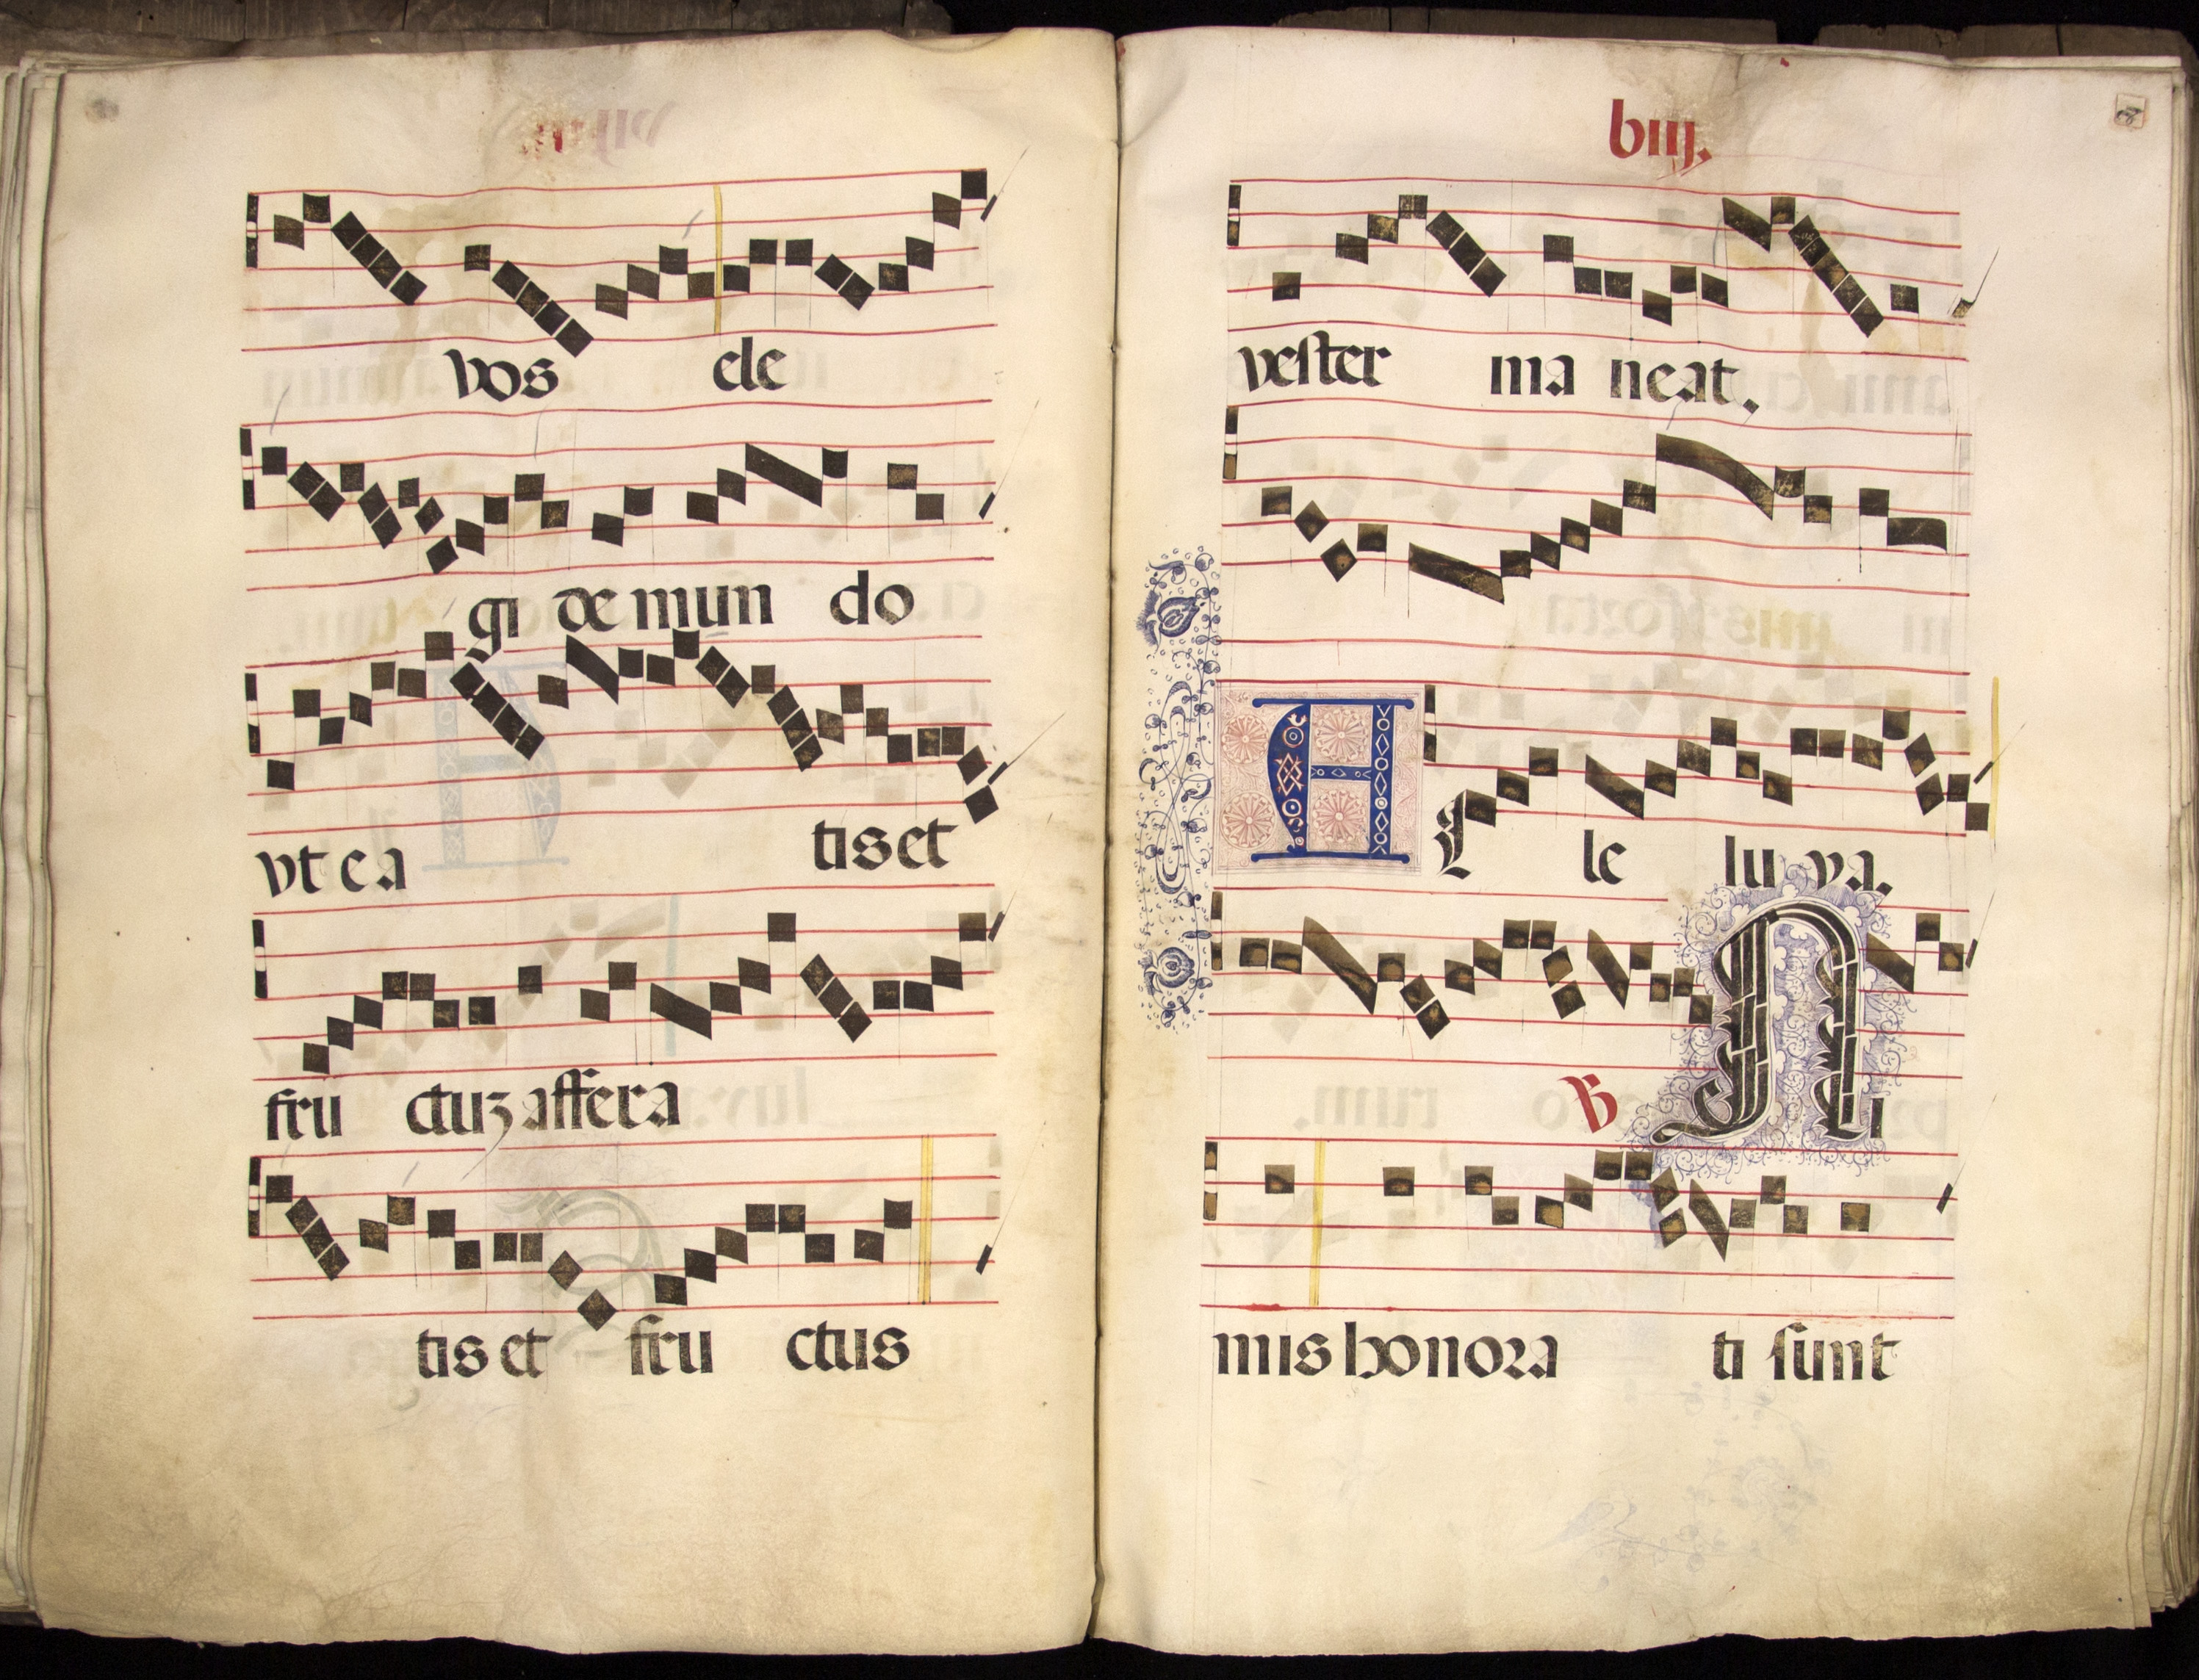 vos ele
gi de mun do
vt e a tis et
fru ctuz affera
tis et fru ctus
biij.
vester ma neat.
A L le lu ya.
℣ Ni
mis honora ti sunt